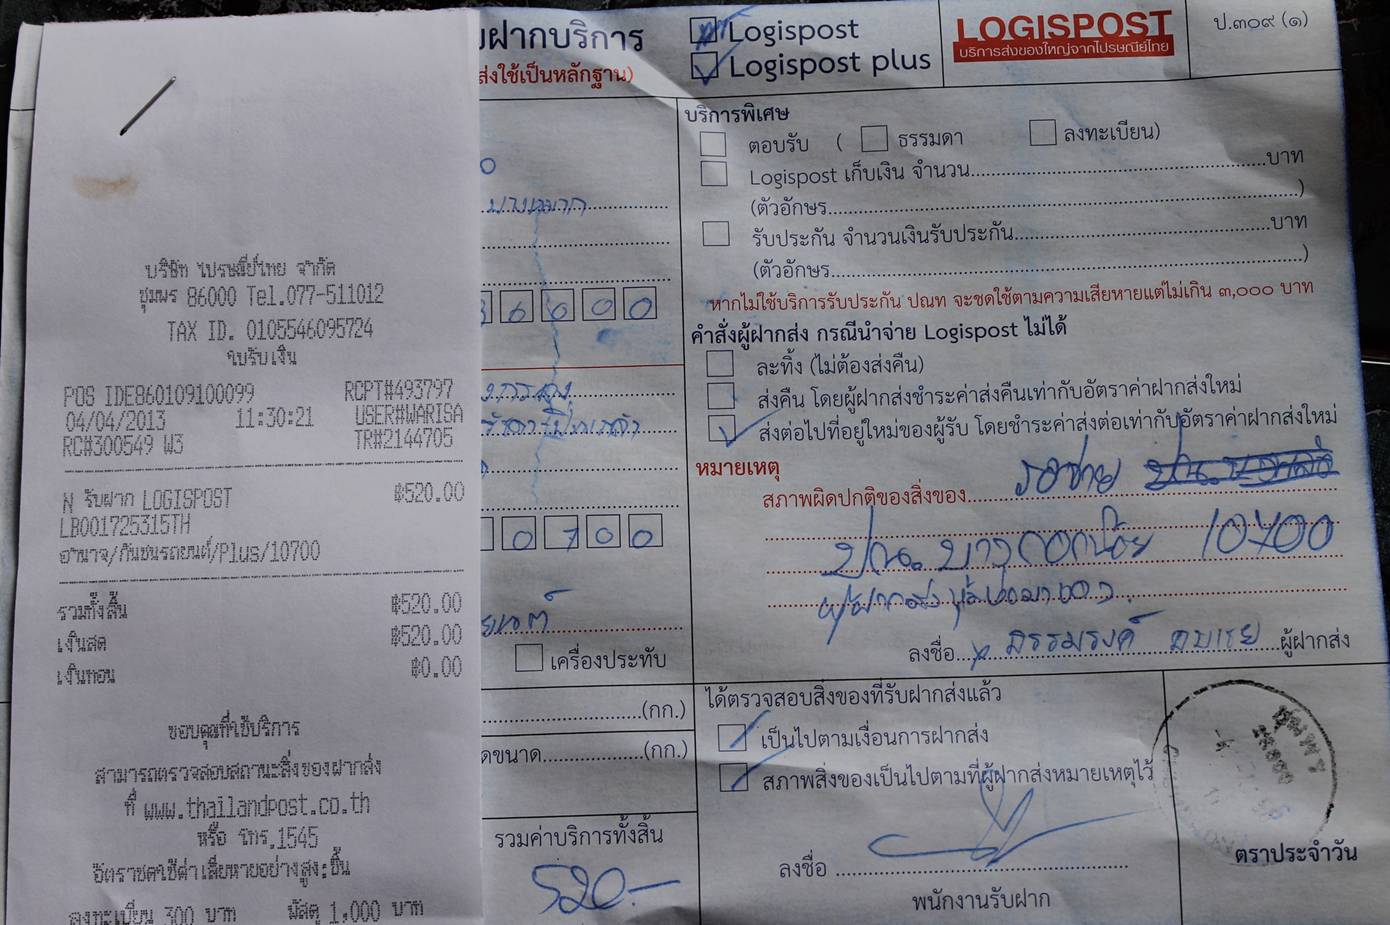 บริษัท ไปรษณีย์ไทย จำกัด
ชุมพร 86000 Tel.077-511012
TAX ID. 0105546095724
ใบรับเงิน
POS IDE860109100099 RCPT#493797
04/04/2013 11:30:21 USER#WARISA
RC#300549 W3 TR#2144705
N รับฝาก LOGISPOST ฿520.00
LB001725315TH
อำนาจ/กันชนรถยนต์/Plus/10700
รวมทั้งสิ้น ฿520.00
เงินสด ฿520.00
เงินทอน ฿0.00
ขอบคุณที่ใช้บริการ
สามารถตรวจสอบสถานะสิ่งของฝากส่ง
ที่ www.thailandpost.co.th
หรือ โทร.1545
อัตราชดใช้ค่าเสียหายอย่างสูง:ชิ้น
ลงทะเบียน 300 บาท พัสดุ 1,000 บาท
ฝากบริการ
ส่งใช้เป็นหลักฐาน)
6000
0700
เครื่องประทับ
(กก.)
ขนาด (กก.)
รวมค่าบริการทั้งสิ้น
520.-
Logispost
Logispost plus
LOGISPOST
บริการส่งของใหญ่จากไปรษณีย์ไทย
ป.๓๐๙ (๑)
บริการพิเศษ
ตอบรับ ( ธรรมดา ลงทะเบียน)
Logispost เก็บเงิน จำนวน บาท
(ตัวอักษร )
รับประกัน จำนวนเงินรับประกัน บาท
(ตัวอักษร )
หากไม่ใช้บริการรับประกัน ปณท จะชดใช้ตามความเสียหายแต่ไม่เกิน ๓,๐๐๐ บาท
คำสั่งผู้ฝากส่ง กรณีนำจ่าย Logispost ไม่ได้
ละทิ้ง (ไม่ต้องส่งคืน)
ส่งคืน โดยผู้ฝากส่งชำระค่าส่งคืนเท่ากับอัตราค่าฝากส่งใหม่
ส่งต่อไปที่อยู่ใหม่ของผู้รับ โดยชำระค่าส่งต่อเท่ากับอัตราค่าฝากส่งใหม่
หมายเหตุ
สภาพผิดปกติของสิ่งของ รอจ่าย
ปณ. บางกอกน้อย 10700
ลงชื่อ ผู้ฝากส่ง
ได้ตรวจสอบสิ่งของที่รับฝากส่งแล้ว
เป็นไปตามเงื่อนการฝากส่ง
สภาพสิ่งของเป็นไปตามที่ผู้ฝากส่งหมายเหตุไว้
ลงชื่อ
พนักงานรับฝาก
ชุมพร
86000
ตราประจำวัน